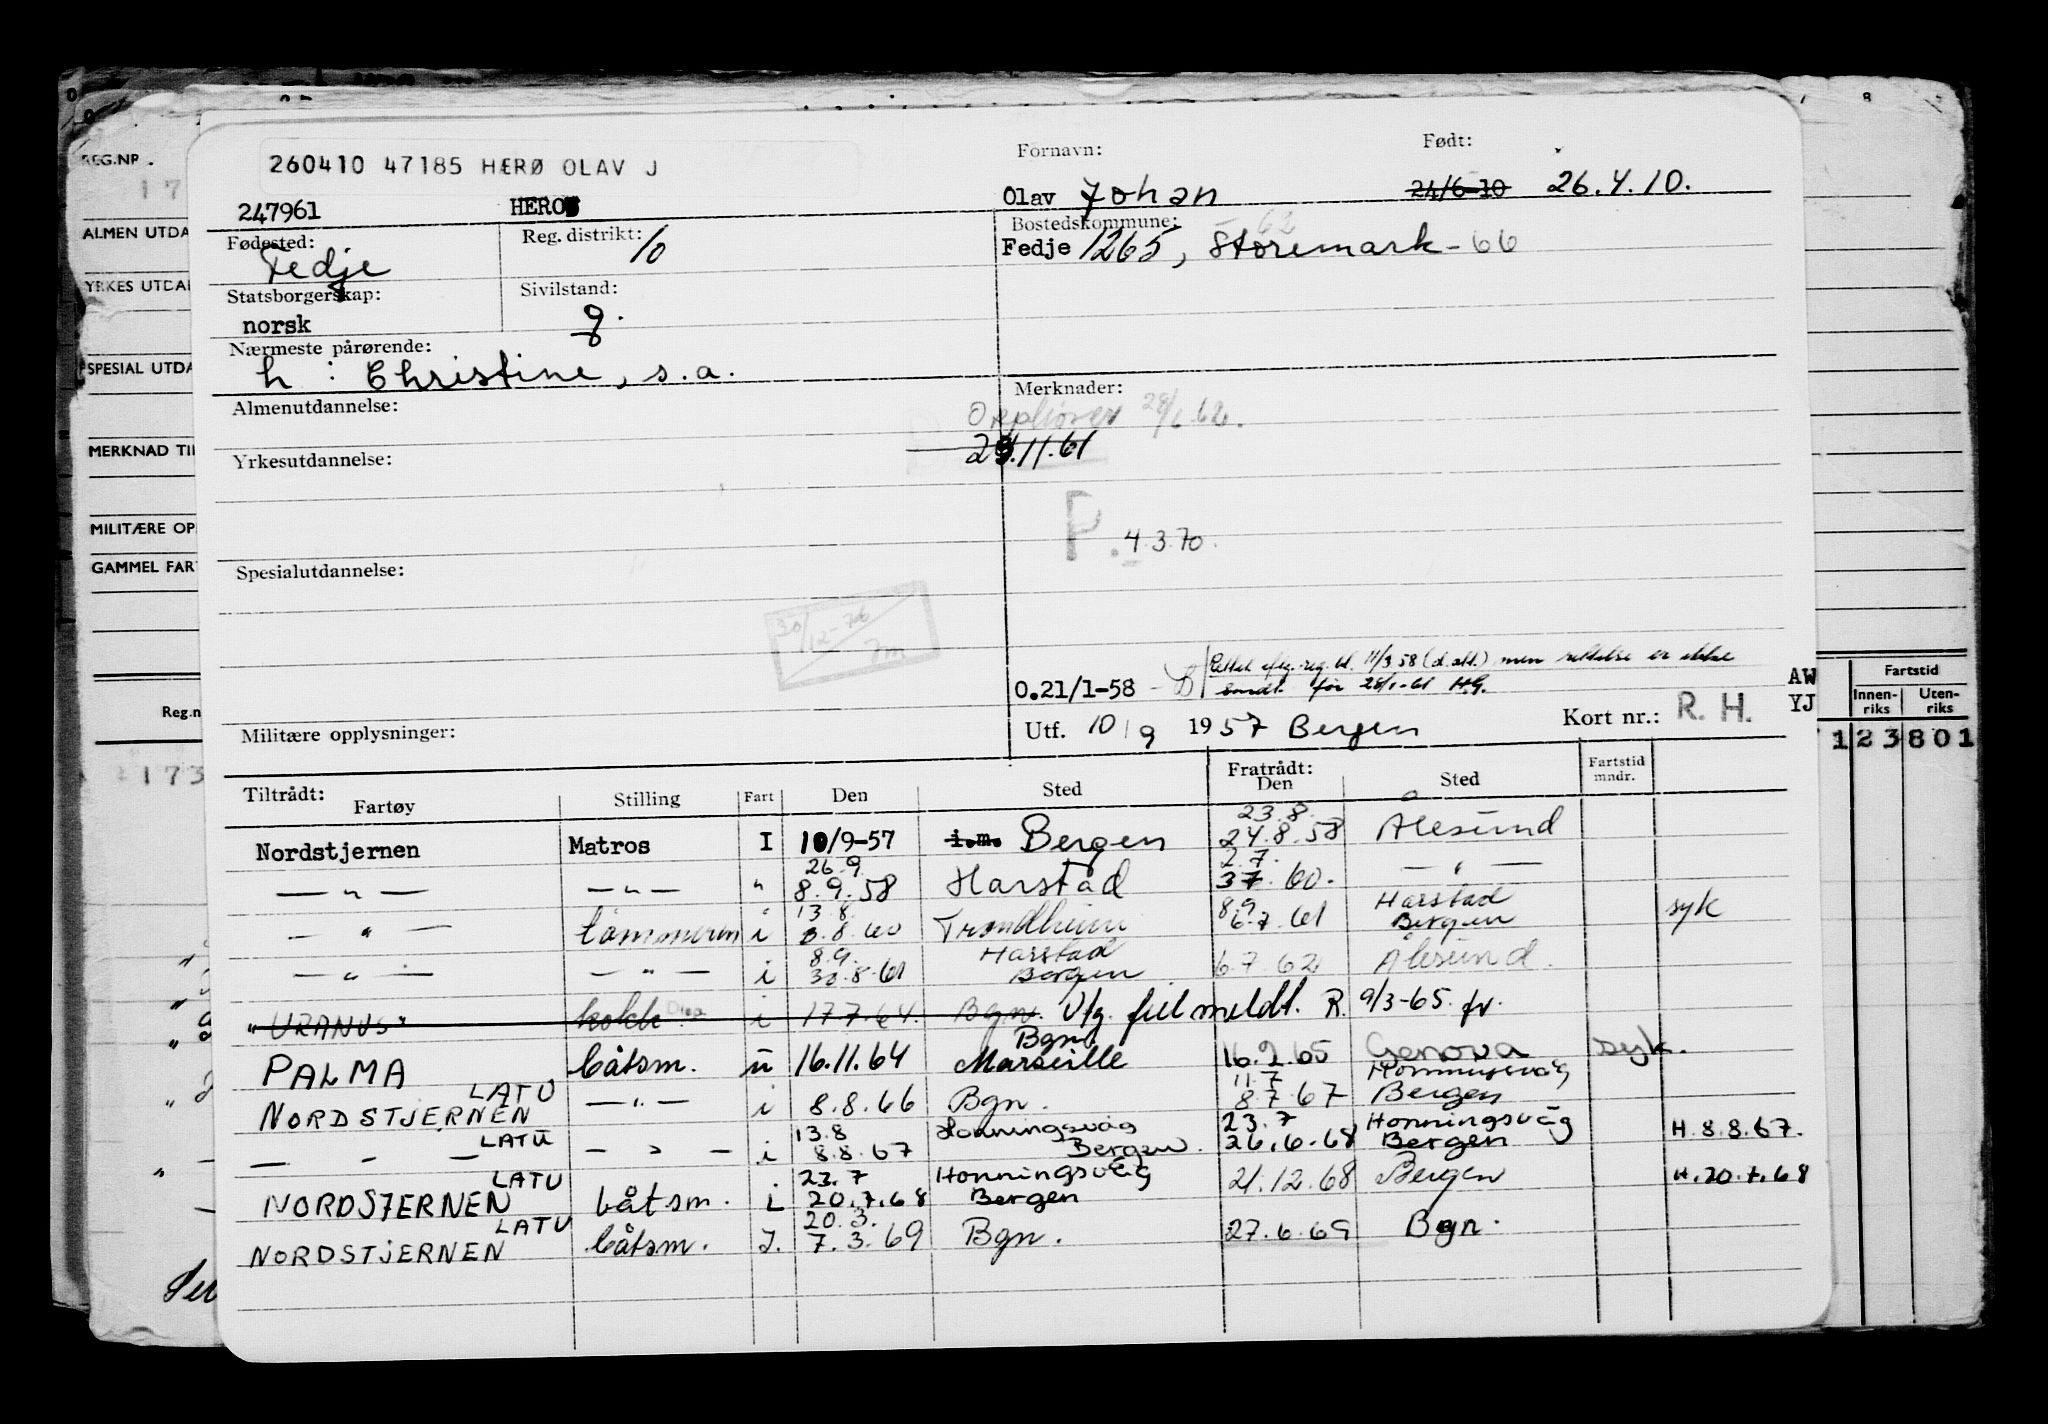 REG.NR.
ALMEN UTDA
YRKES UTDA
SPESIAL UTDA
MERKNAD TI
MILITÆRE OP
GAMMEL FAR
Reg.n
173
260410 47185 HÆRØ OLAV J
Fornavn:
Født:
247961
HERO
Olav Johan
24/6-10 26.4.10.
Fødested:
Fedje
Reg. distrikt:
10
Bostedskommune:
Fedje 1265, Storemark-66
62
Statsborgerskap:
norsk
Sivilstand:
g.
Nærmeste pårørende:
h : Christine, s.a.
Almenutdannelse:
Merknader:
28/1.62.
.11.61
Yrkesutdannelse:
P. 4.3.70.
Spesialutdannelse:
30/12-76
O.21/1-58
reg.bl. 11/3 58 (d.att.) men rettelse er ikke
sendt før 28/1-61 H.G.
Militære opplysninger:
Utf. 10/9 1957 Bergen
Kort nr.: R. H.
AW
YJ
Fartstid
Innen-
riks
Uten-
riks
123801
Tiltrådt:
Fartøy
Stilling
Fart
Den
Sted
Fratrådt:
Den
Sted
Fartstid
mndr.
23.8.
Nordstjernen Matros I 10/9-57 i.m. Bergen 24.8.58 Ålesund
26.9. 2.7.
— " — — " — " 8.9.58 Harstad 37.60. — " —
13.8. 8.9 Harstad
— " — tømmerm i 8.60 Trondheim 6.7.61 Bergen syk
8.9. Harstad
— " — — " — i 30.8.61 Bergen 6.7.62 Ålesund.
"URANUS" kokk i 17.7.64. Bgn. Utg. feil meldt. R. 9/3-65. fr.
Bgn
PALMA båtsm. u 16.11.64 Marseille 16.2.65 Genova syk.
LATU 11.7 Honningsvåg
NORDSTJERNEN — " — i 8.8.66 Bgn. 8.7.67 Bergen
LATU 13.8 Honningsvåg 23.7 Honningsvåg
— " — — " — i 8.8.67 Bergen. 26.6.68 Bergen H. 8.8.67.
LATU 23.7 Honningsvåg
NORDSTERNEN båtsm. i 20.7.68 Bergen 21.12.68 Bergen H. 20.7.68
LATU 20.3.
NORDSTJERNEN båtsm. I. 7.3.69 Bgn. 27.6.69 Bgn.